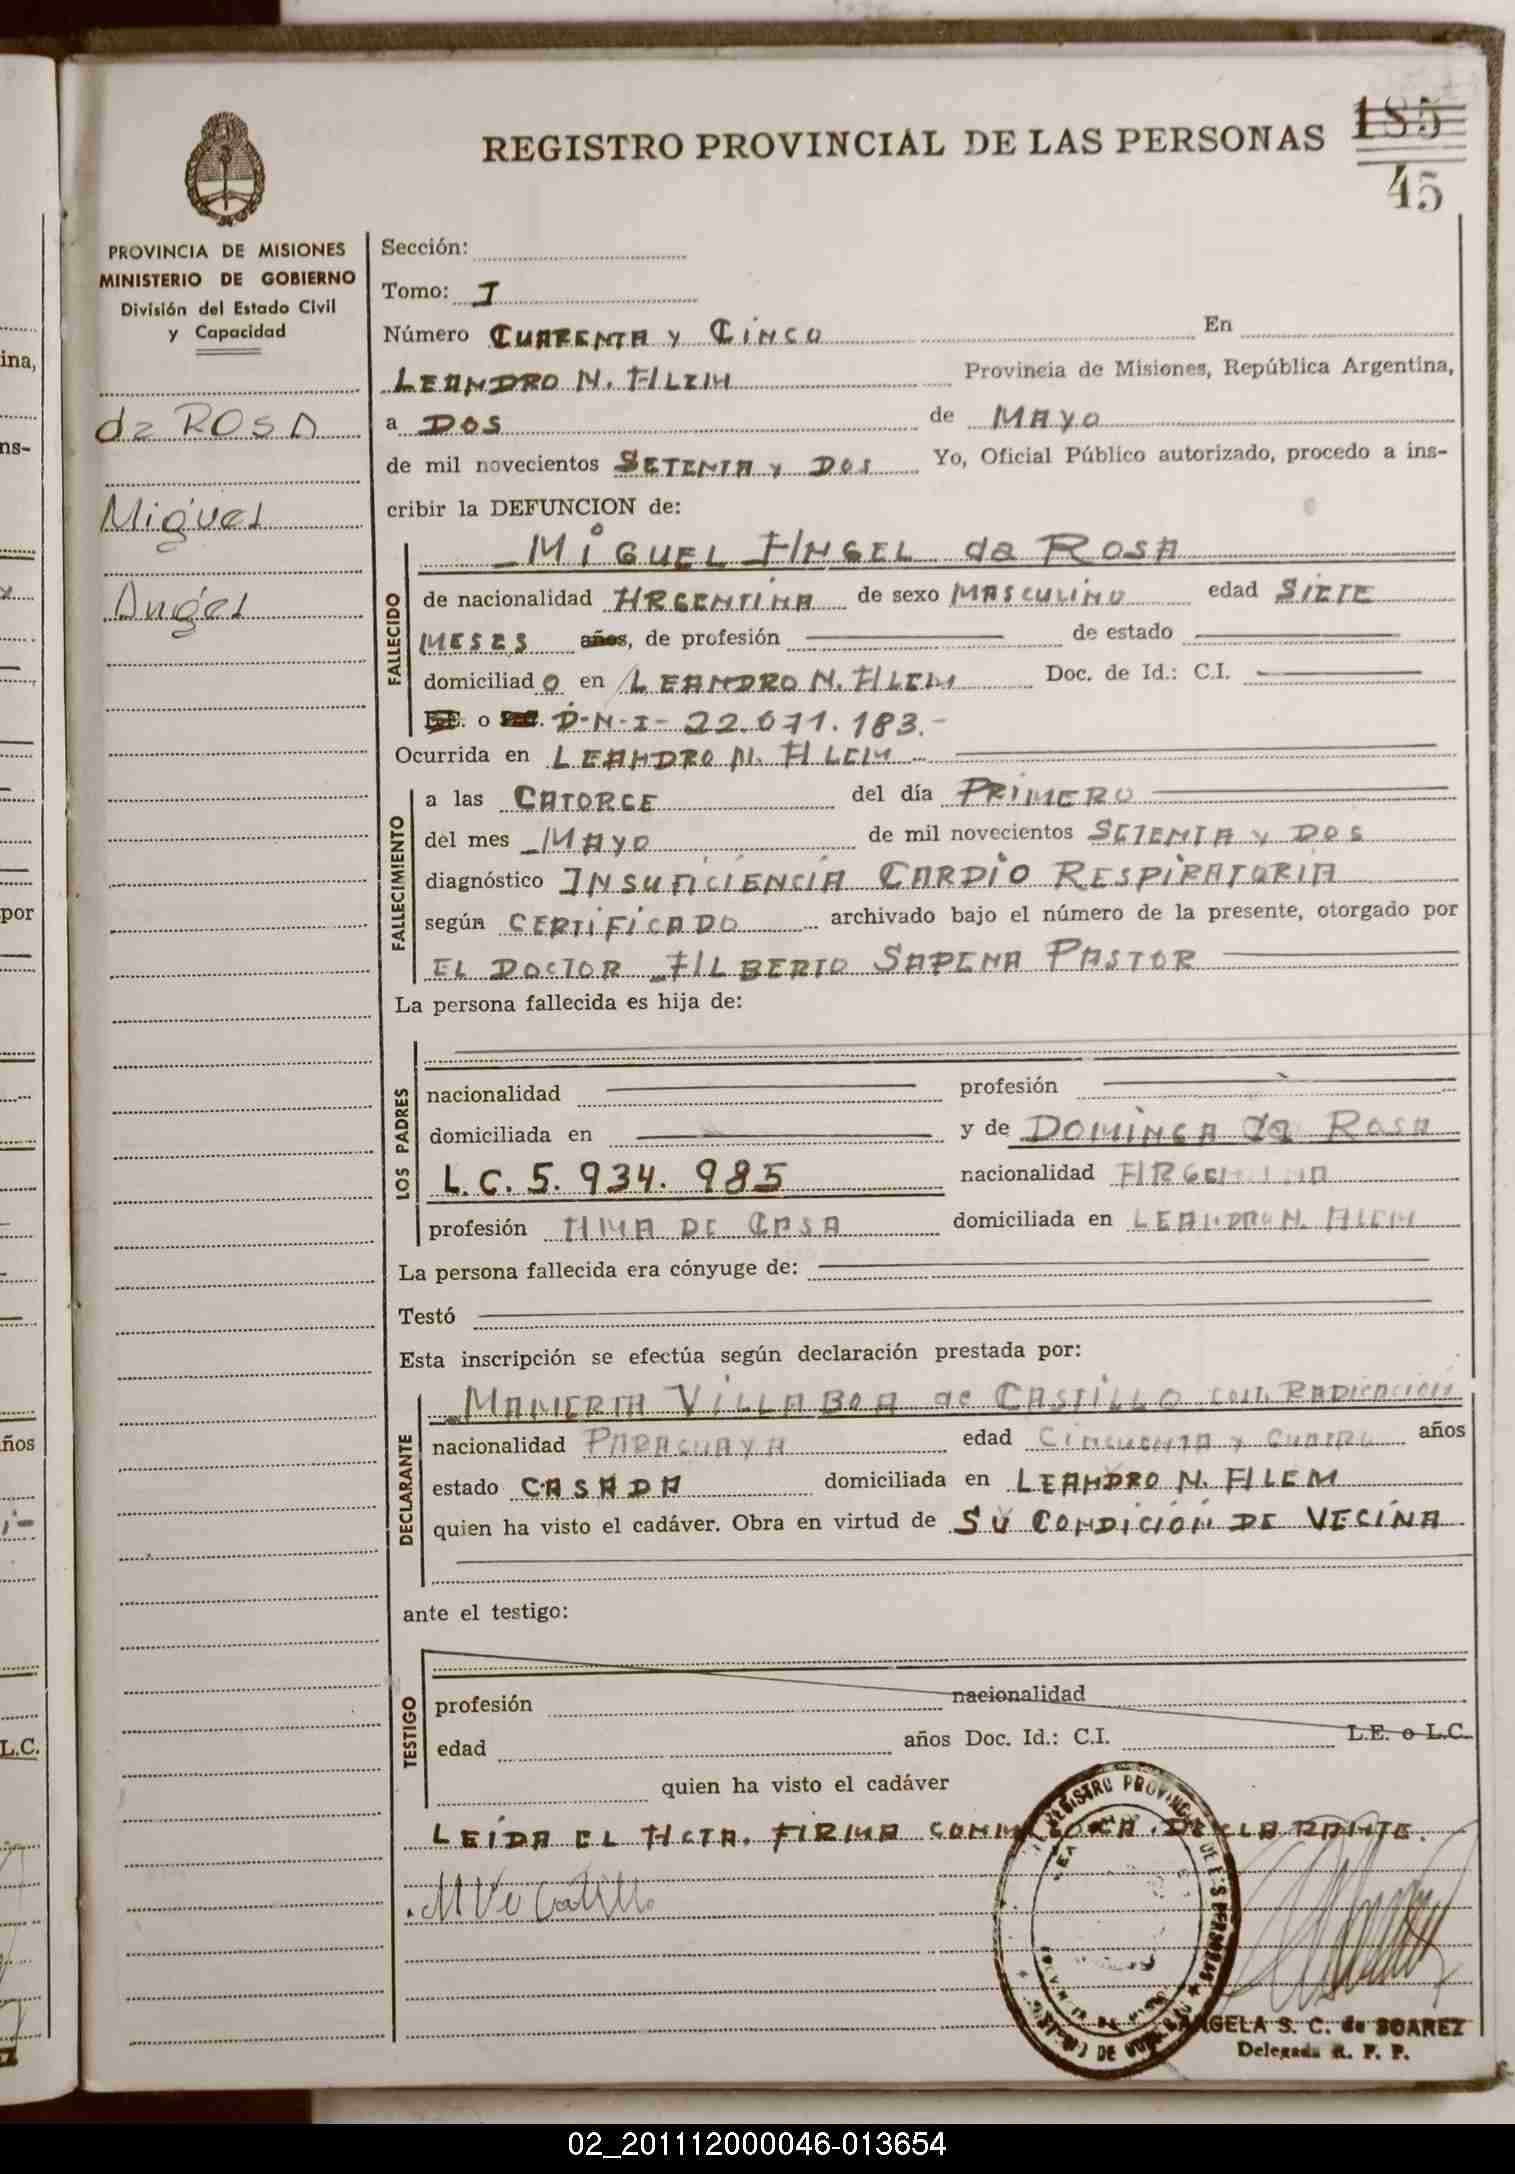 REGISTRO PROVINCIAL DE LAS PERSONAS
185
45
PROVINCIA DE MISIONES
MINISTERIO DE GOBIERNO
División del Estado Civil
y Capacidad
da ROSA
Miguel
Angel
Sección:
Tomo: I
Número CUARENTA Y CINCO En
LEANDRO N. ALEM Provincia de Misiones, República Argentina,
a DOS de MAYO
de mil novecientos SETENTA Y DOS Yo, Oficial Público autorizado, procedo a ins-
cribir la DEFUNCION de:
FALLECIDO
MIGUEL ANGEL da ROSA
de nacionalidad ARGENTINA de sexo MASCULINO edad SIETE
MESES años, de profesión de estado
domiciliado en LEANDRO N. ALEM Doc. de Id.: C.I.
o D.N.I- 22.071.183.-
Ocurrida en LEANDRO N. ALEM
FALLECIMIENTO
a las CATORCE del día PRIMERO
del mes MAYO de mil novecientos SETENTA Y DOS
diagnóstico INSUFICIENCIA CARDIO RESPIRATORIA
según CERTIFICADO archivado bajo el número de la presente, otorgado por
EL DOCTOR ALBERTO SAPENA PASTOR
La persona fallecida es hija de:
LOS PADRES
nacionalidad profesión
domiciliada en y de DOMINGA da ROSA
L.C. 5.934.985 nacionalidad ARGENTINA
profesión AMA DE CASA domiciliada en LEANDRO N. ALEM
La persona fallecida era cónyuge de:
Testó
Esta inscripción se efectúa según declaración prestada por:
DECLARANTE
MAMERTA VILLABOA de CASTILLO con RADICACION
nacionalidad PARAGUAYA edad CINCUENTA Y CUATRO años
estado CASADA domiciliada en LEANDRO N. ALEM
quien ha visto el cadáver. Obra en virtud de SU CONDICIÓN DE VECINA
ante el testigo:
TESTIGO
profesión nacionalidad
edad años Doc. Id.: C.I. L.E. o L.C.
quien ha visto el cadáver
LEIDA EL ACTA. FIRMA CONMIGO LA DECLARANTE.
M V de Castillo
REGISTRO PROVINCIAL DE LAS PERSONAS
ANGELA S. C. de SOAREZ
Delegada R. P. P.
ina,
ns-
por
ños
L.C.
02_201112000046-013654